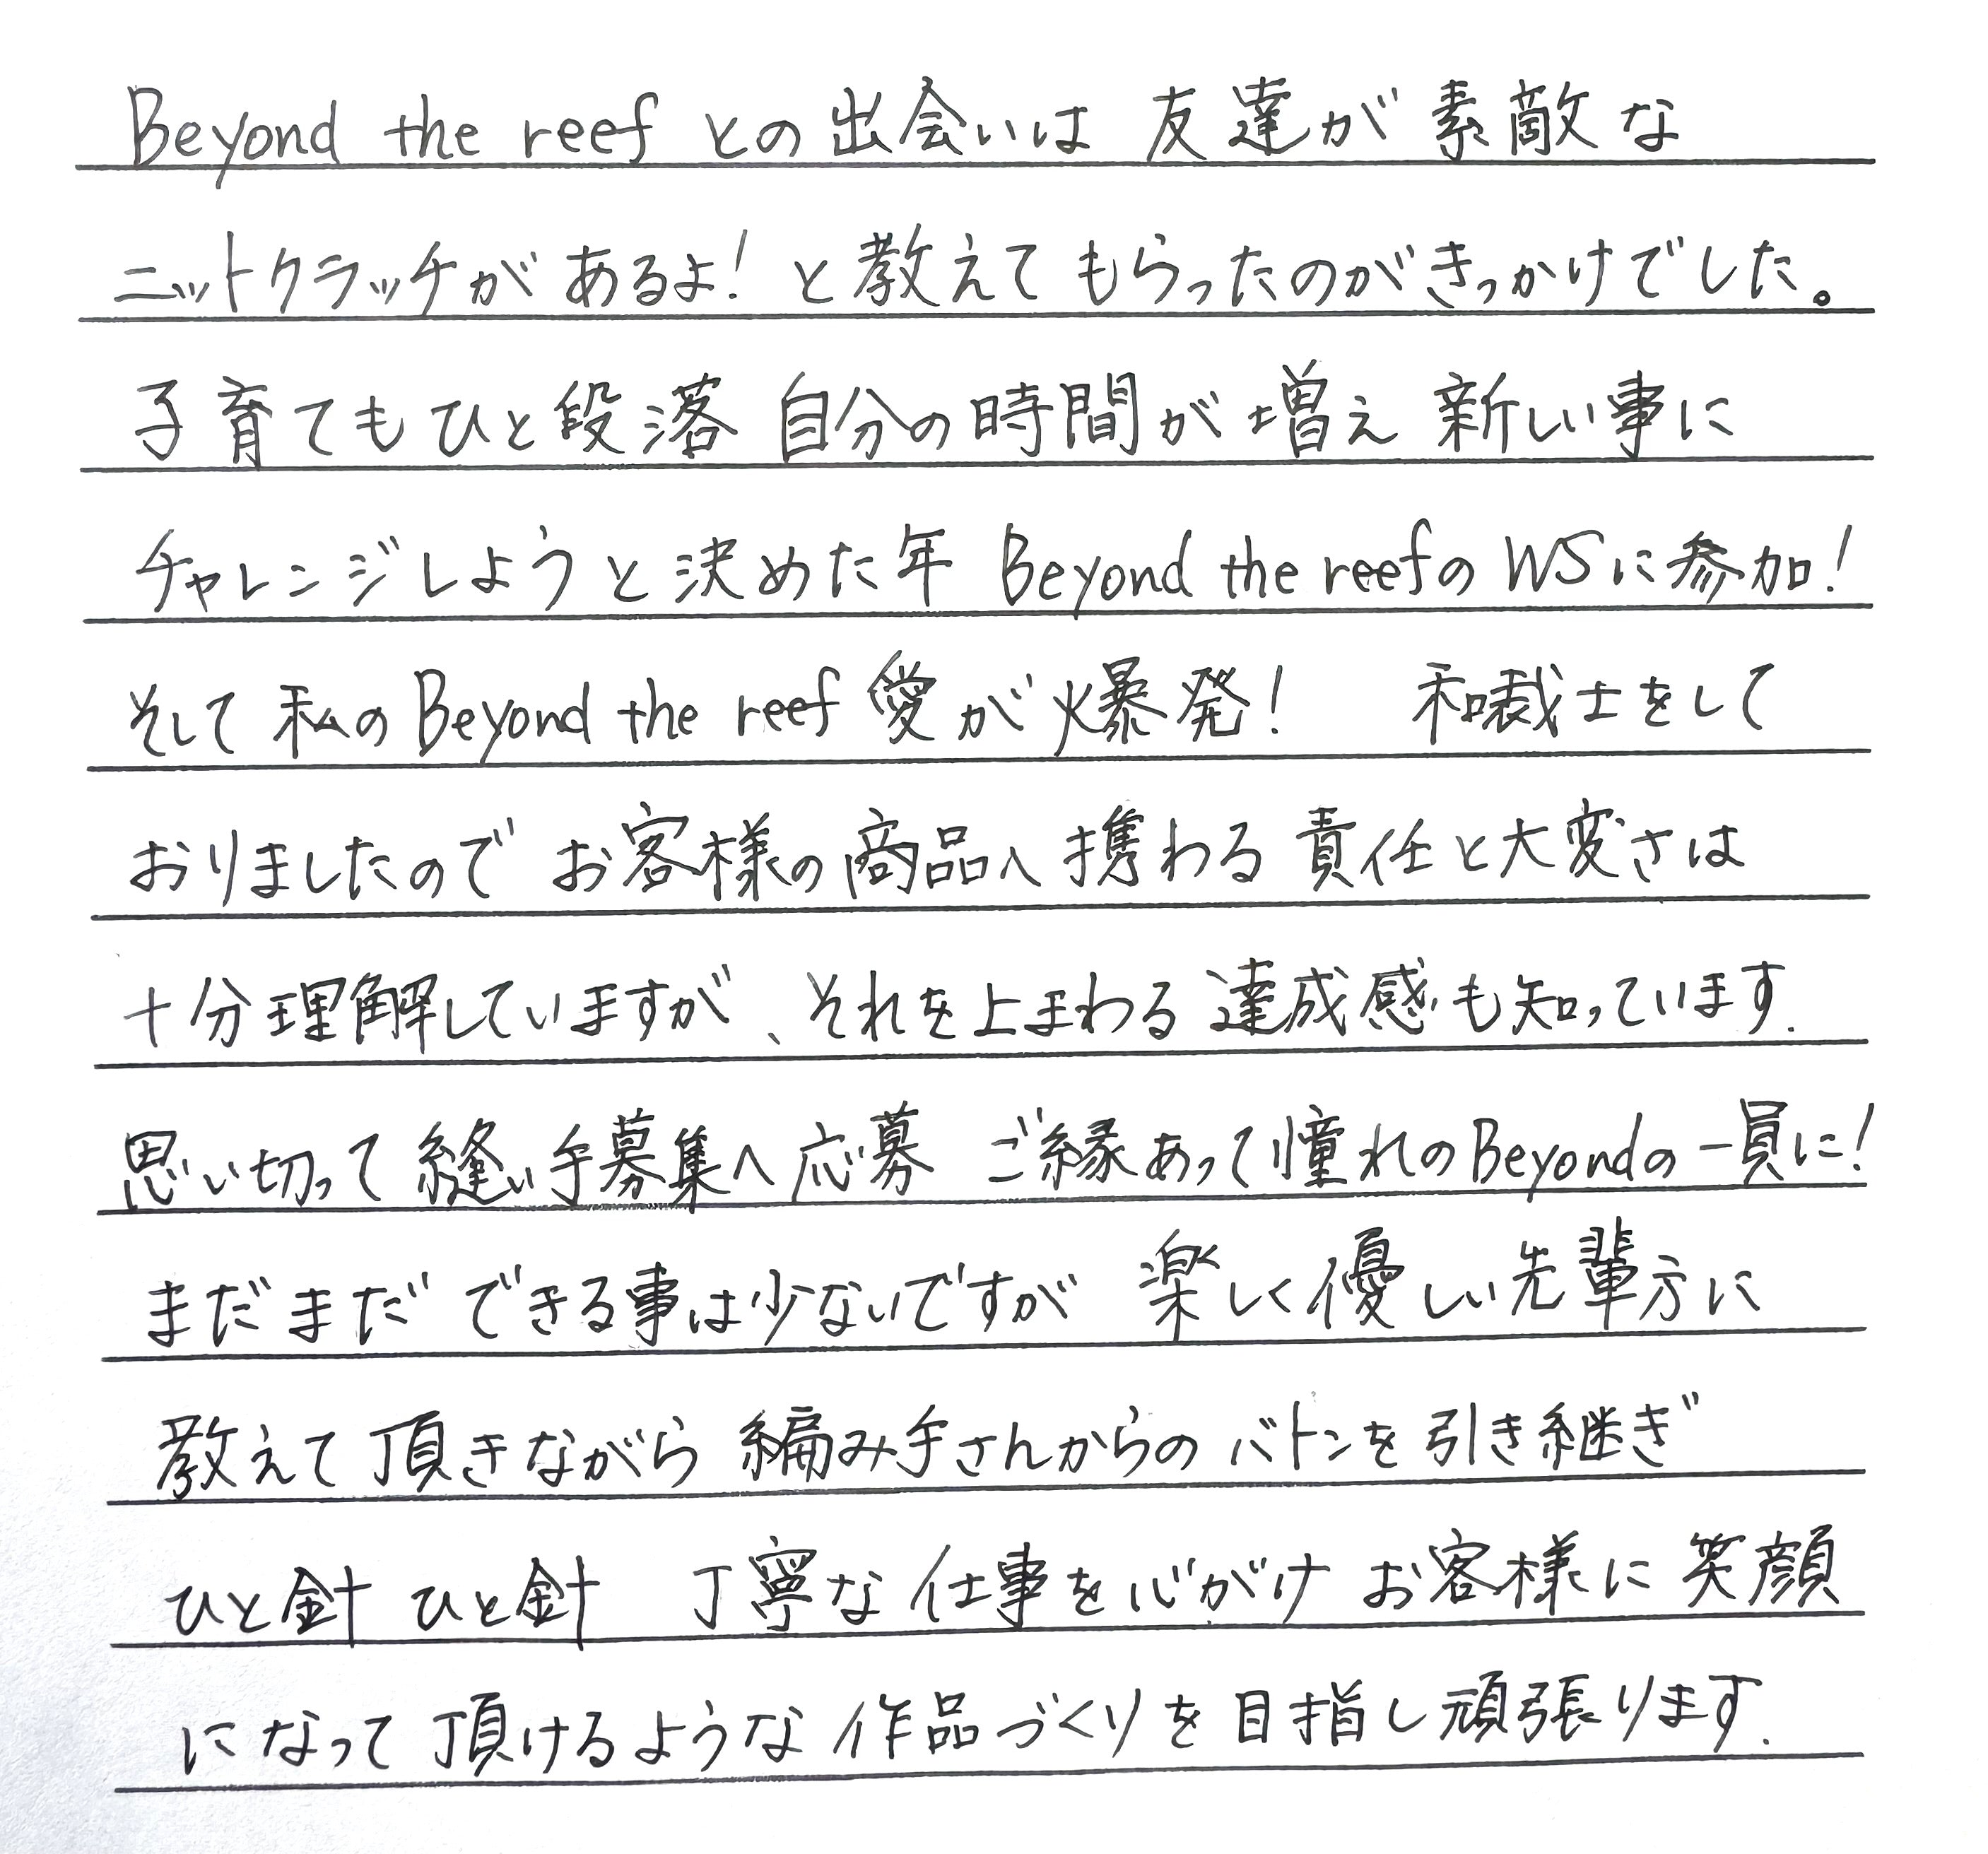 Beyond the reef との出会いは 友達が素敵な
ニットクラッチがあるよ! と教えてもらったのがきっかけでした。
子育てもひと段落 自分の時間が増え 新しい事に
チャレンジしようと決めた年 Beyond the reefの WSに参加!
そして 私のBeyond the reef愛が爆発! 和裁士をして
おりましたので お客様の商品へ携わる責任と大変さは
十分理解していますが、それを上まわる達成感も知っています.
思い切って縫い手募集へ応募 ご縁あって憧れのBeyondの一員に!
まだまだできる事は少ないですが 楽しく優しい先輩方に
教えて頂きながら 編み手さんからのバトンを引き継ぎ
ひと針 ひと針 丁寧な仕事を心がけ お客様に笑顔
になって頂けるような作品づくりを目指し頑張ります.